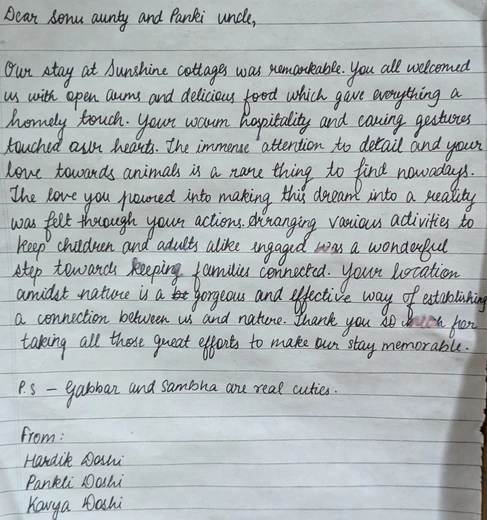 Dear Sonu aunty and Panki uncle,
Our stay at Sunshine cottages was remarkable. You all welcomed
us with open arms and delicious food which gave everything a
homely touch. Your warm hospitality and caring gestures
touched our hearts. The immense attention to detail and your
love towards animals is a rare thing to find nowadays.
The love you poured into making this dream into a reality
was felt through your actions. Arranging various activities to
keep children and adults alike engaged was a wonderful
step towards keeping families connected. Your location
amidst nature is a gorgeous and effective way of establishing
a connection between us and nature. Thank you so much for
taking all those great efforts to make our stay memorable.
P.S - Gabbar and Sambha are real cuties.
From:
Hardik Doshi
Pankti Doshi
Kavya Doshi